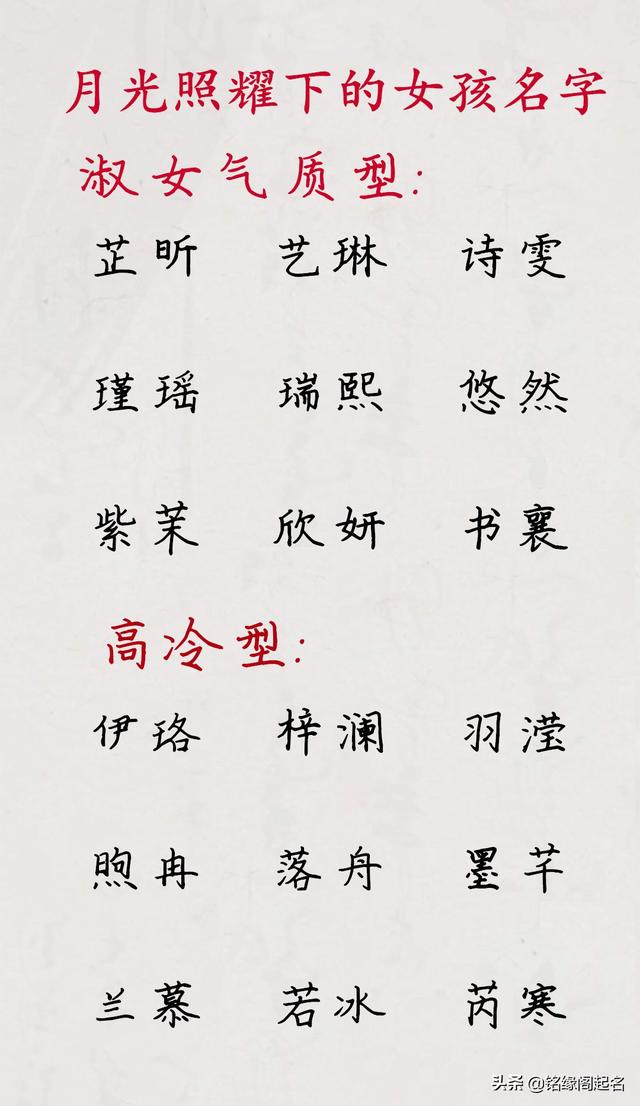 月光照耀下的女孩名字
淑女气质型:
芷昕 艺琳 诗雯
瑾瑶 瑞熙 悠然
紫茉 欣妍 书襄
高冷型:
伊珞 梓澜 羽滢
煦冉 落舟 墨芊
兰慕 若冰 芮寒
头条 @铭缘阁起名